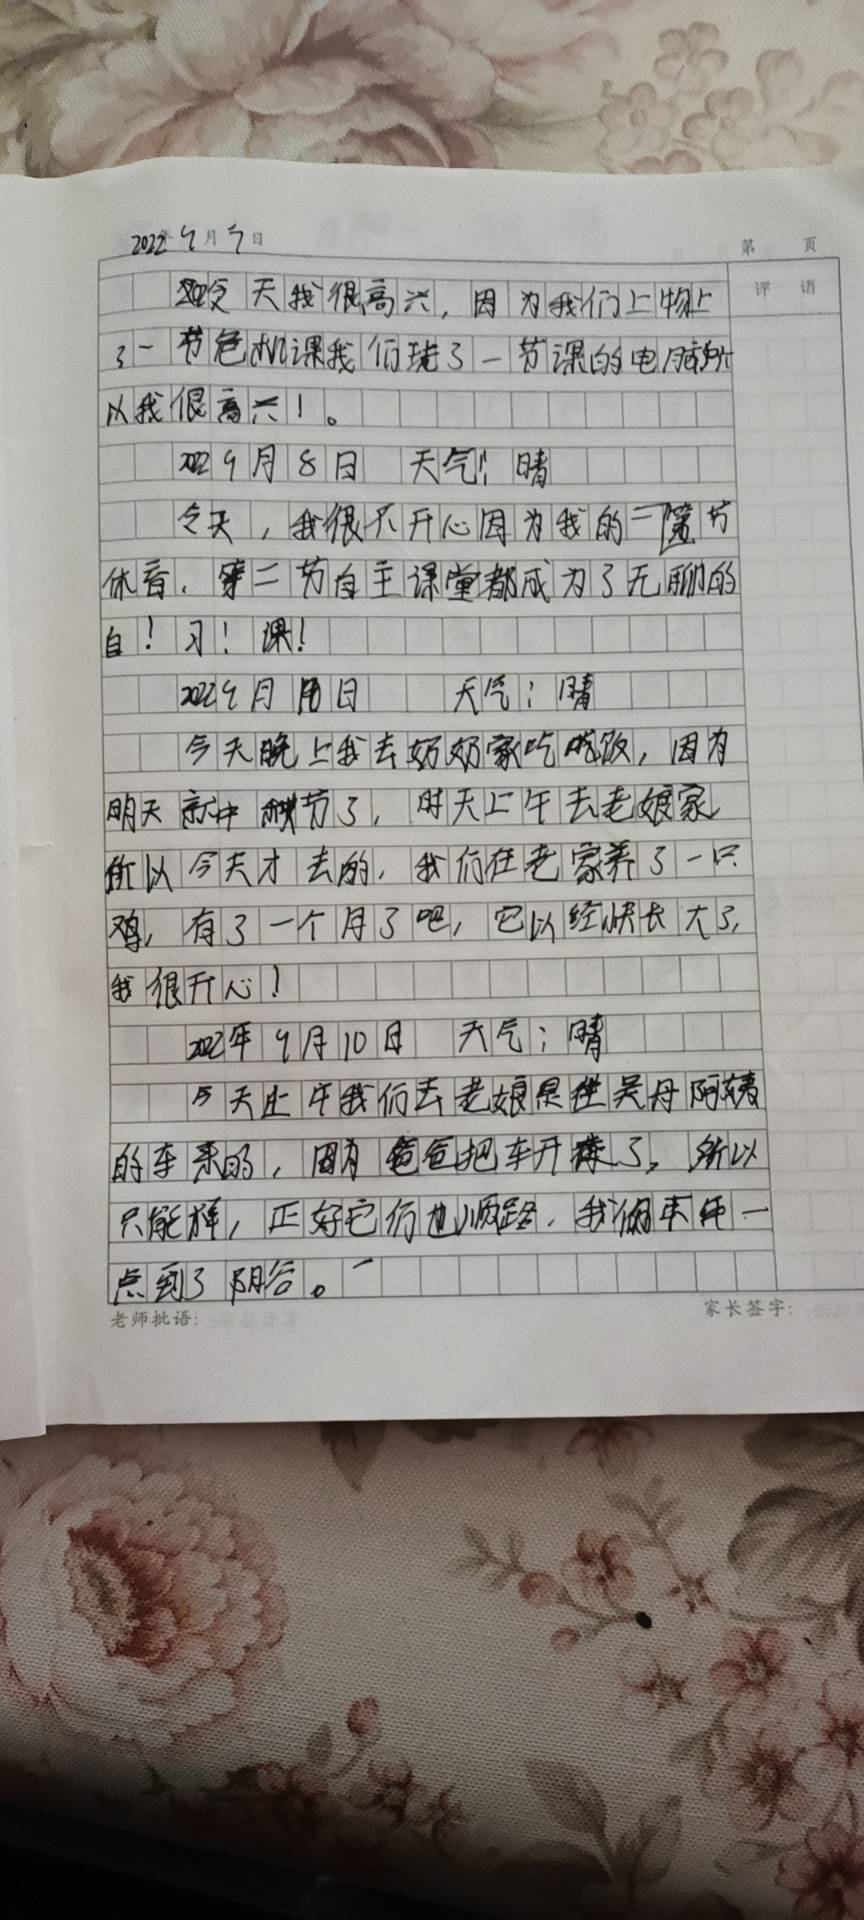 2022年9月7日
第 页
评 语
今天我很高兴，因为我们上物上
了一节危机课我们玩了一节课的电脑所
以我很高兴！。
2022 9月8日 天气：晴
今天，我很不开心因为我的二节
休音．第二节自主课堂都成为了无聊的
自！习！课！
2022 9月 日 天气：晴
今天晚上我去奶奶家吃吃饭，因为
明天就中秋节了，时天上午去老娘家
所以今天才去的，我们在老家养了一只
鸡，有了一个月了吧，它以经快长大了，
我很开心！
2022年9月10日 天气：晴
今天上午我们去老娘是坐吴丹阿姨
的车来的，因为爸爸把车开走了。所以
只能择，正好它们也顺路．我们来一
点到了阴谷。
老师批语：
家长签字：